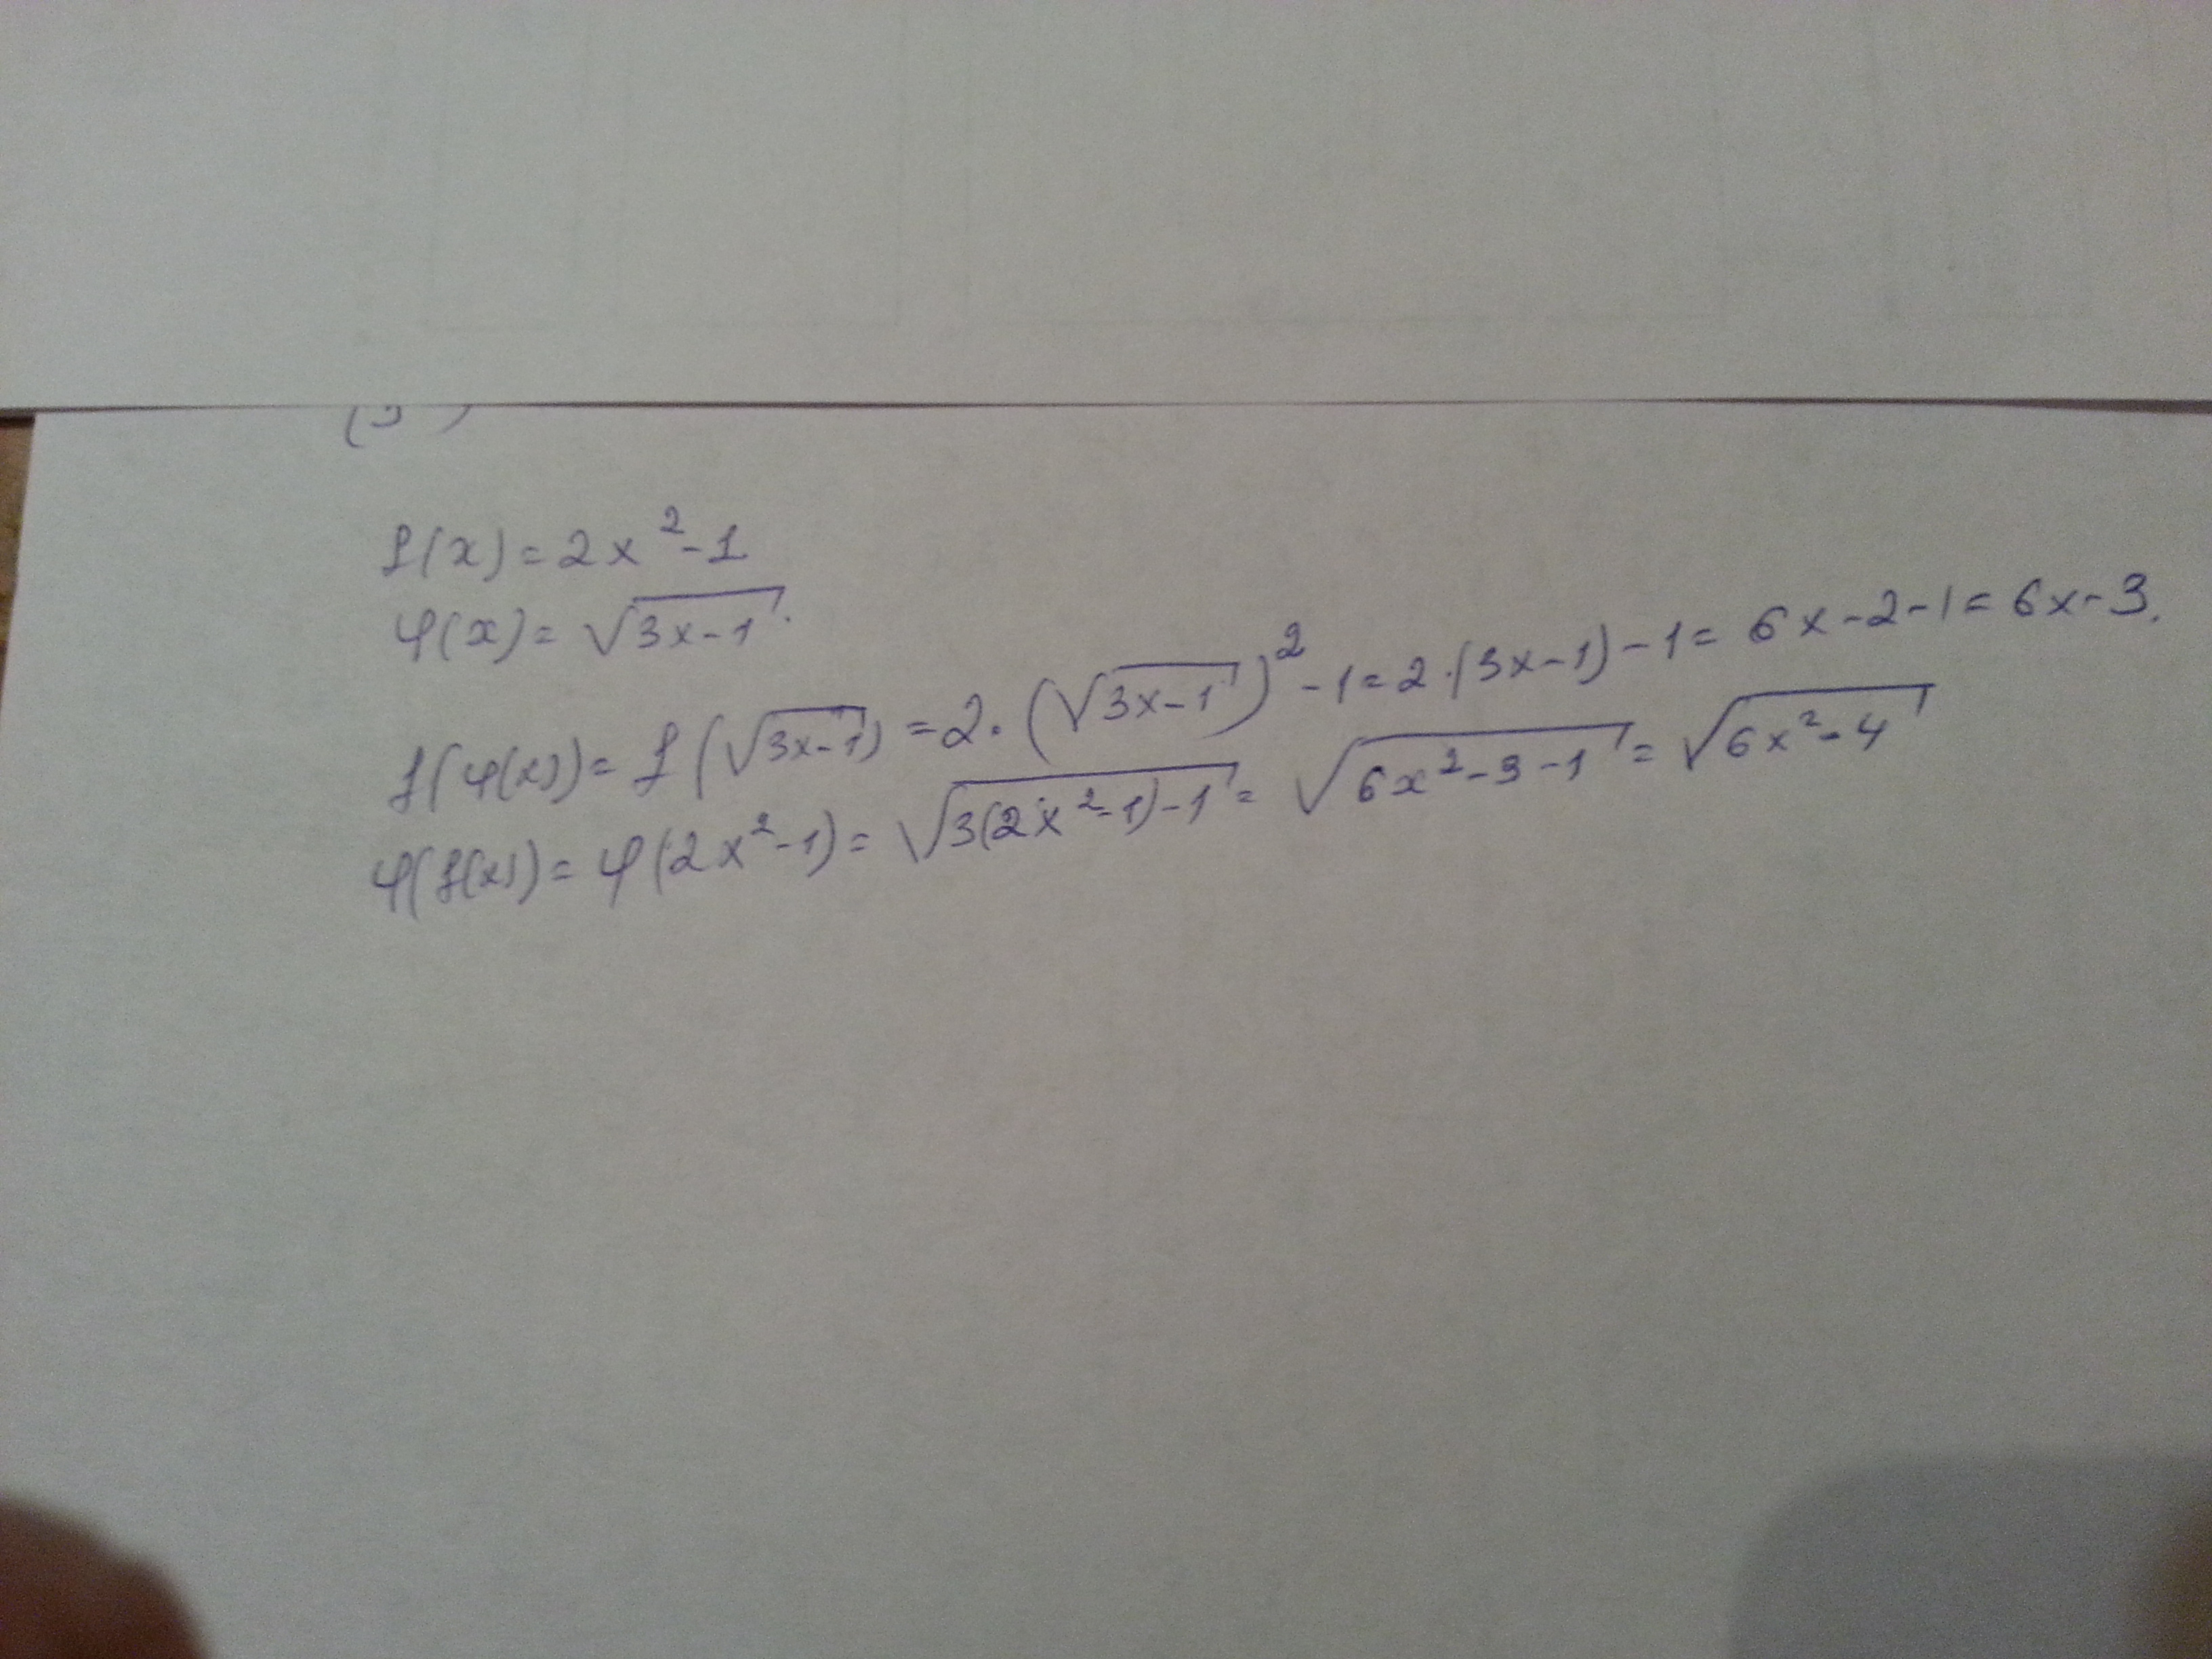 f(x) = 2x² - 1
φ(x) = √(3x-1).
f(φ(x)) = f(√(3x-1)) = 2·(√(3x-1))² - 1 = 2·(3x-1) - 1 = 6x - 2 - 1 = 6x - 3.
φ(f(x)) = φ(2x²-1) = √(3(2x²-1)-1) = √(6x²-3-1) = √(6x²-4)